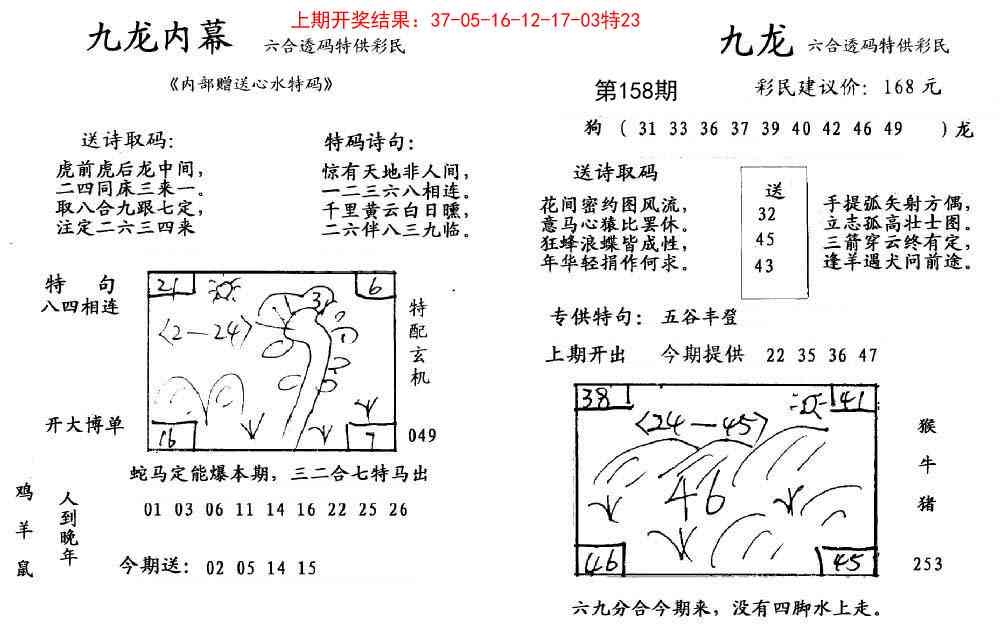 上期开奖结果：37-05-16-12-17-03特23
九龙内幕 六合透码特供彩民
《内部赠送心水特码》
送诗取码：
虎前虎后龙中间，
二四同床三来一。
取八合九跟七定，
注定二六三四来
特码诗句：
惊有天地非人间，
一二三六八相连。
千里黄云白日曛，
二六伴八三九临。
特 句
八四相连
开大博单
21
6
3
〈2—24〉
16
7
特配玄机
049
蛇马定能爆本期，三二合七特马出
鸡羊鼠
人到晚年
01 03 06 11 14 16 22 25 26
今期送：02 05 14 15
九龙 六合透码特供彩民
第158期
彩民建议价：168元
狗（31 33 36 37 39 40 42 46 49 ）龙
送诗取码
花间密约图风流，
意马心猿比罢休。
狂蜂浪蝶皆成性，
年华轻捐作何求。
送
32
45
43
手提弧矢射方偶，
立志孤高壮士图。
三箭穿云终有定，
逢羊遇犬问前途。
专供特句：五谷丰登
上期开出 今期提供 22 35 36 47
38
41
〈24—45〉
46
46
45
猴
牛
猪
253
六九分合今期来，没有四脚水上走。